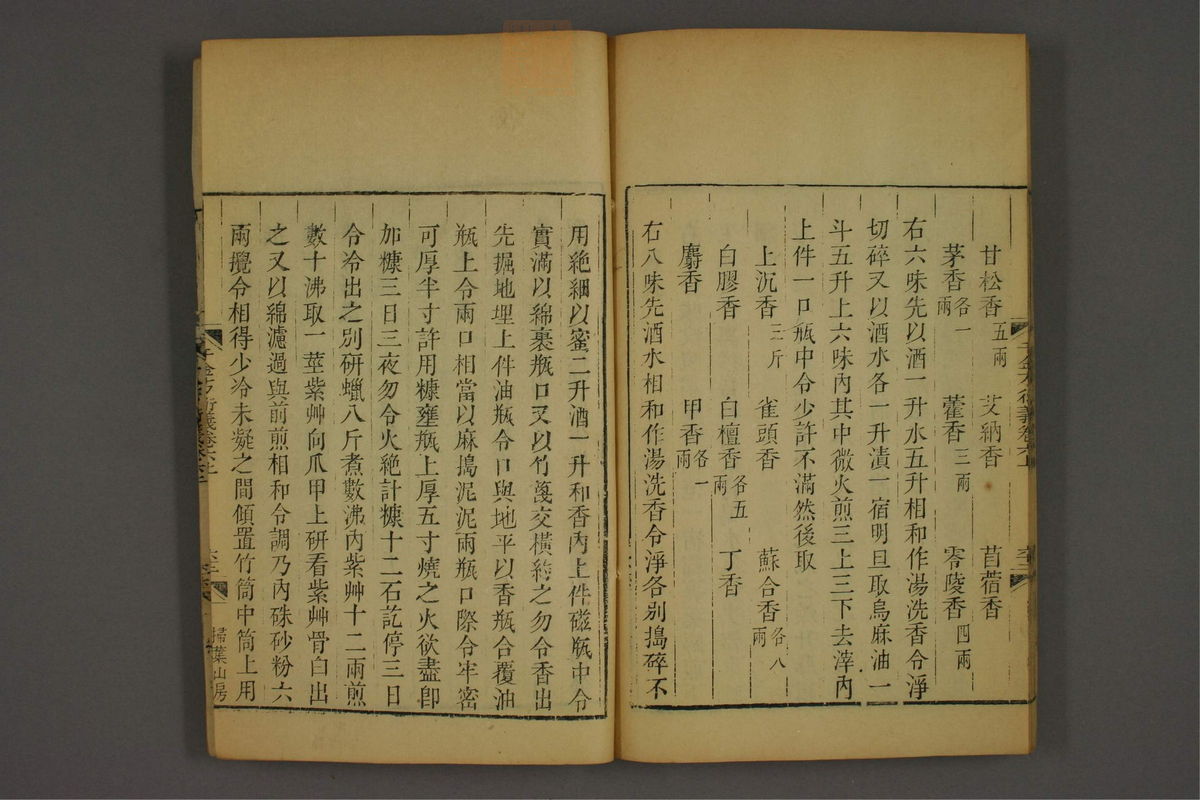 甘松香五兩　艾納香　苜蓿香
茅香各一兩　藿香三兩　零陵香四兩
右六味先以酒一升水五升相和作湯洗香令淨
切碎又以酒水各一升漬一宿明旦取烏麻油一
斗五升上六味內其中微火煎三上三下去滓內
上件一口瓶中令少許不滿然後取
上沉香三斤　雀頭香　蘇合香各八兩
白膠香　白檀香各五兩　丁香
麝香　甲香各一兩
右八味先酒水相和作湯洗香令淨各別搗碎不
用絶細以蜜二升酒一升和香內上件磁瓶中令
實滿以綿裹瓶口又以竹篾交橫約之勿令香出
先掘地埋上件油瓶令口與地平以香瓶合覆油
瓶上令兩口相當以麻搗泥泥兩瓶口際令牢密
可厚半寸許用糠壅瓶上厚五寸燒之火欲盡卽
加糠三日三夜勿令火絶計糠十二石訖停三日
令冷出之別研蠟八斤煮數沸內紫艸十二兩煎
數十沸取一莖紫艸向爪甲上研看紫艸骨白出
之又以綿濾過與前煎相和令調乃內硃砂粉六
兩攪令相得少冷未凝之間傾置竹筒中筒上用
千金方衍義卷六上
掃葉山房